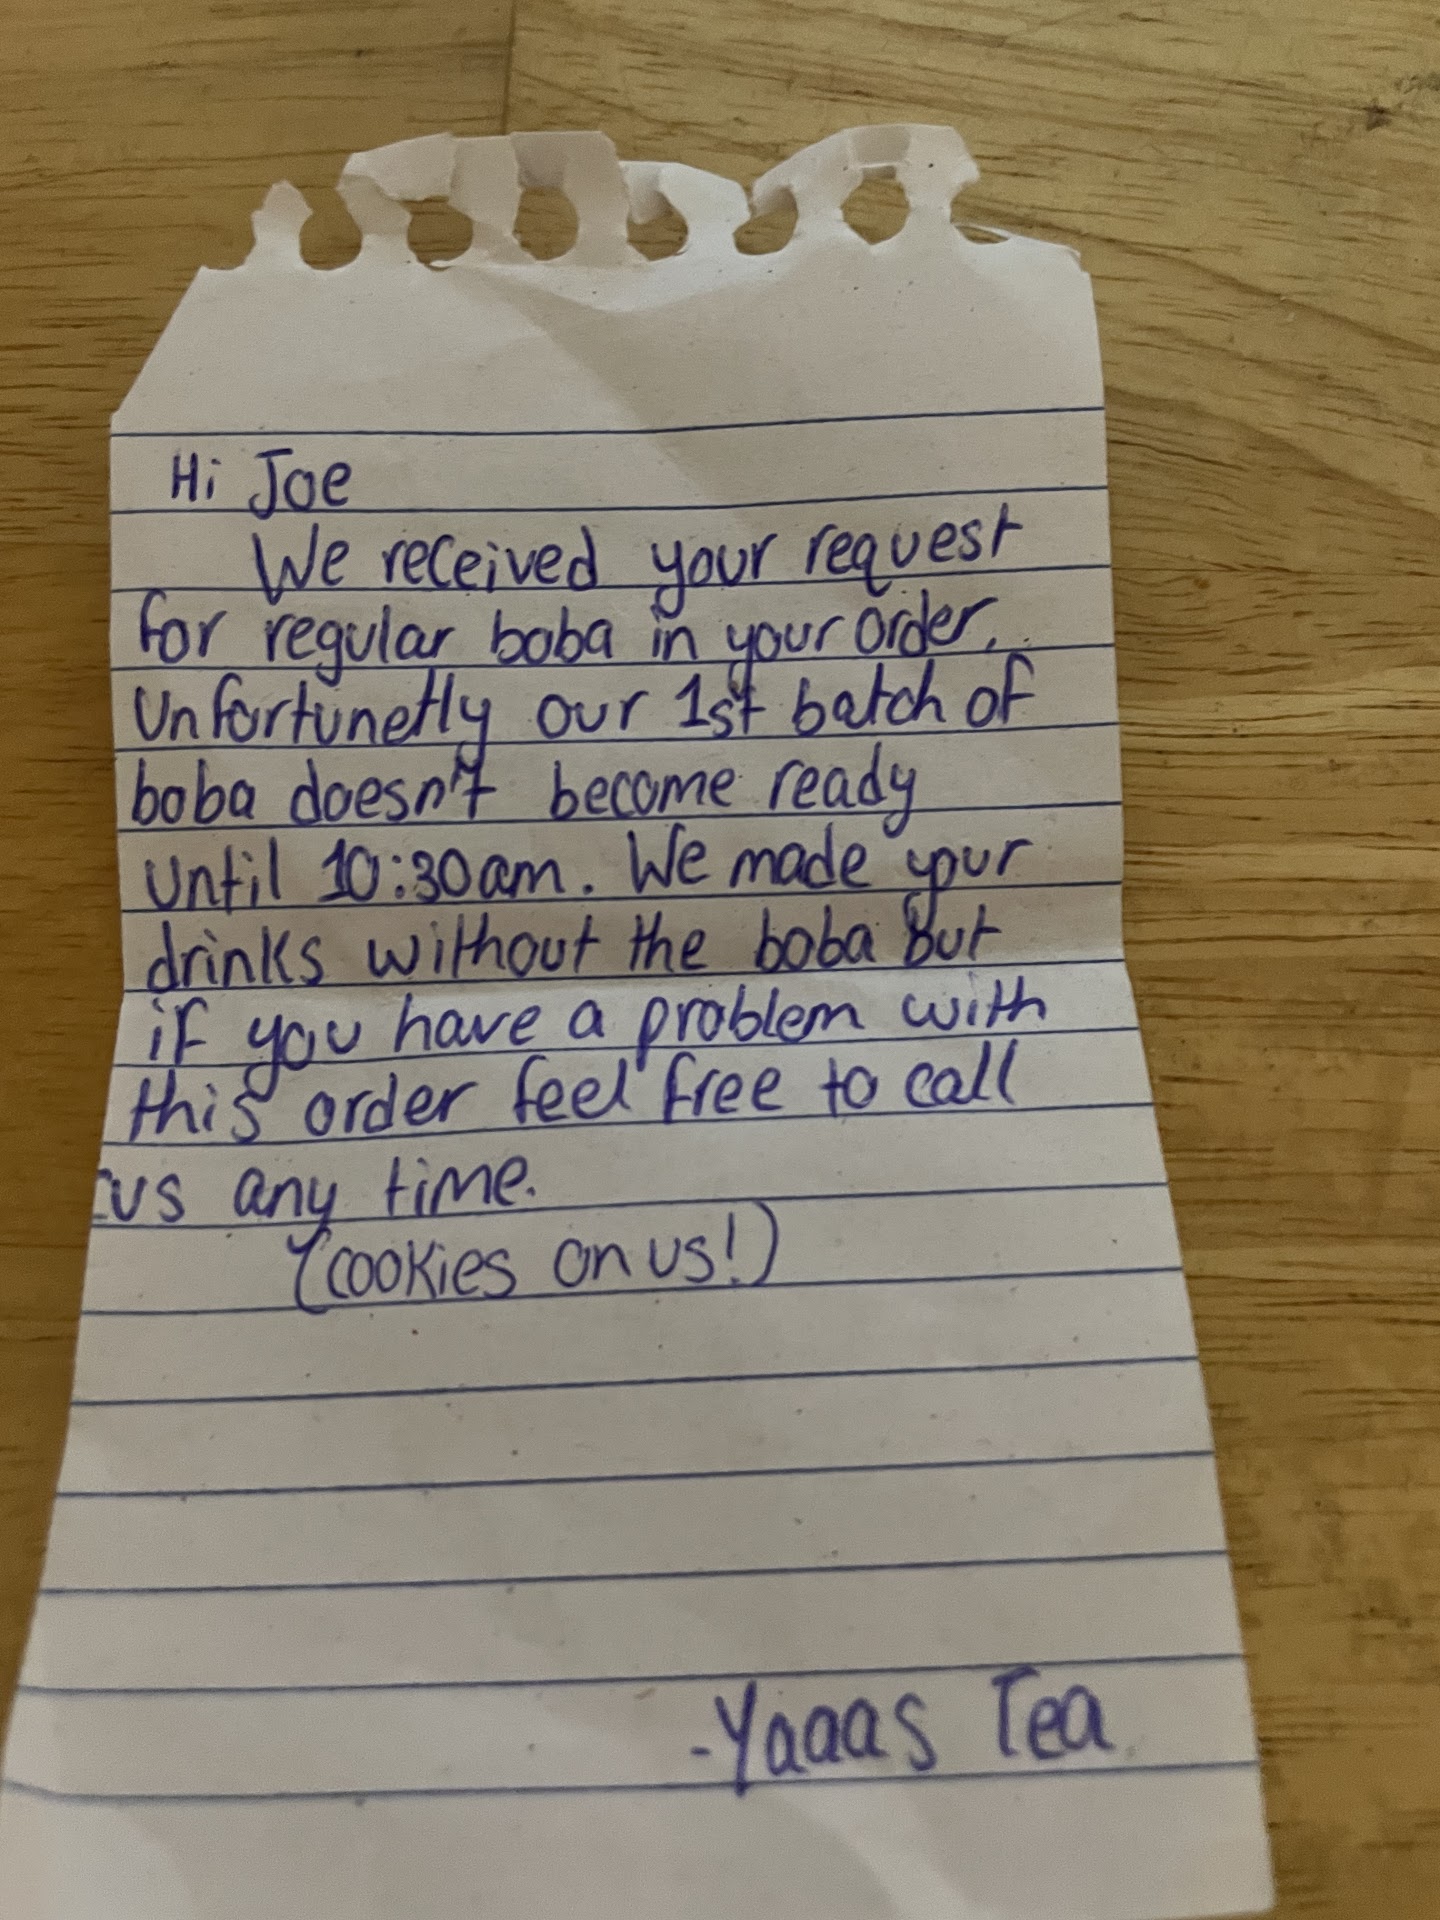 Hi Joe
We received your request
for regular boba in your order.
Unfortunetly our 1st batch of
boba doesn't become ready
until 10:30am. We made your
drinks without the boba but
if you have a problem with
this order feel free to call
us any time.
(cookies on us!)
-Yaaas Tea